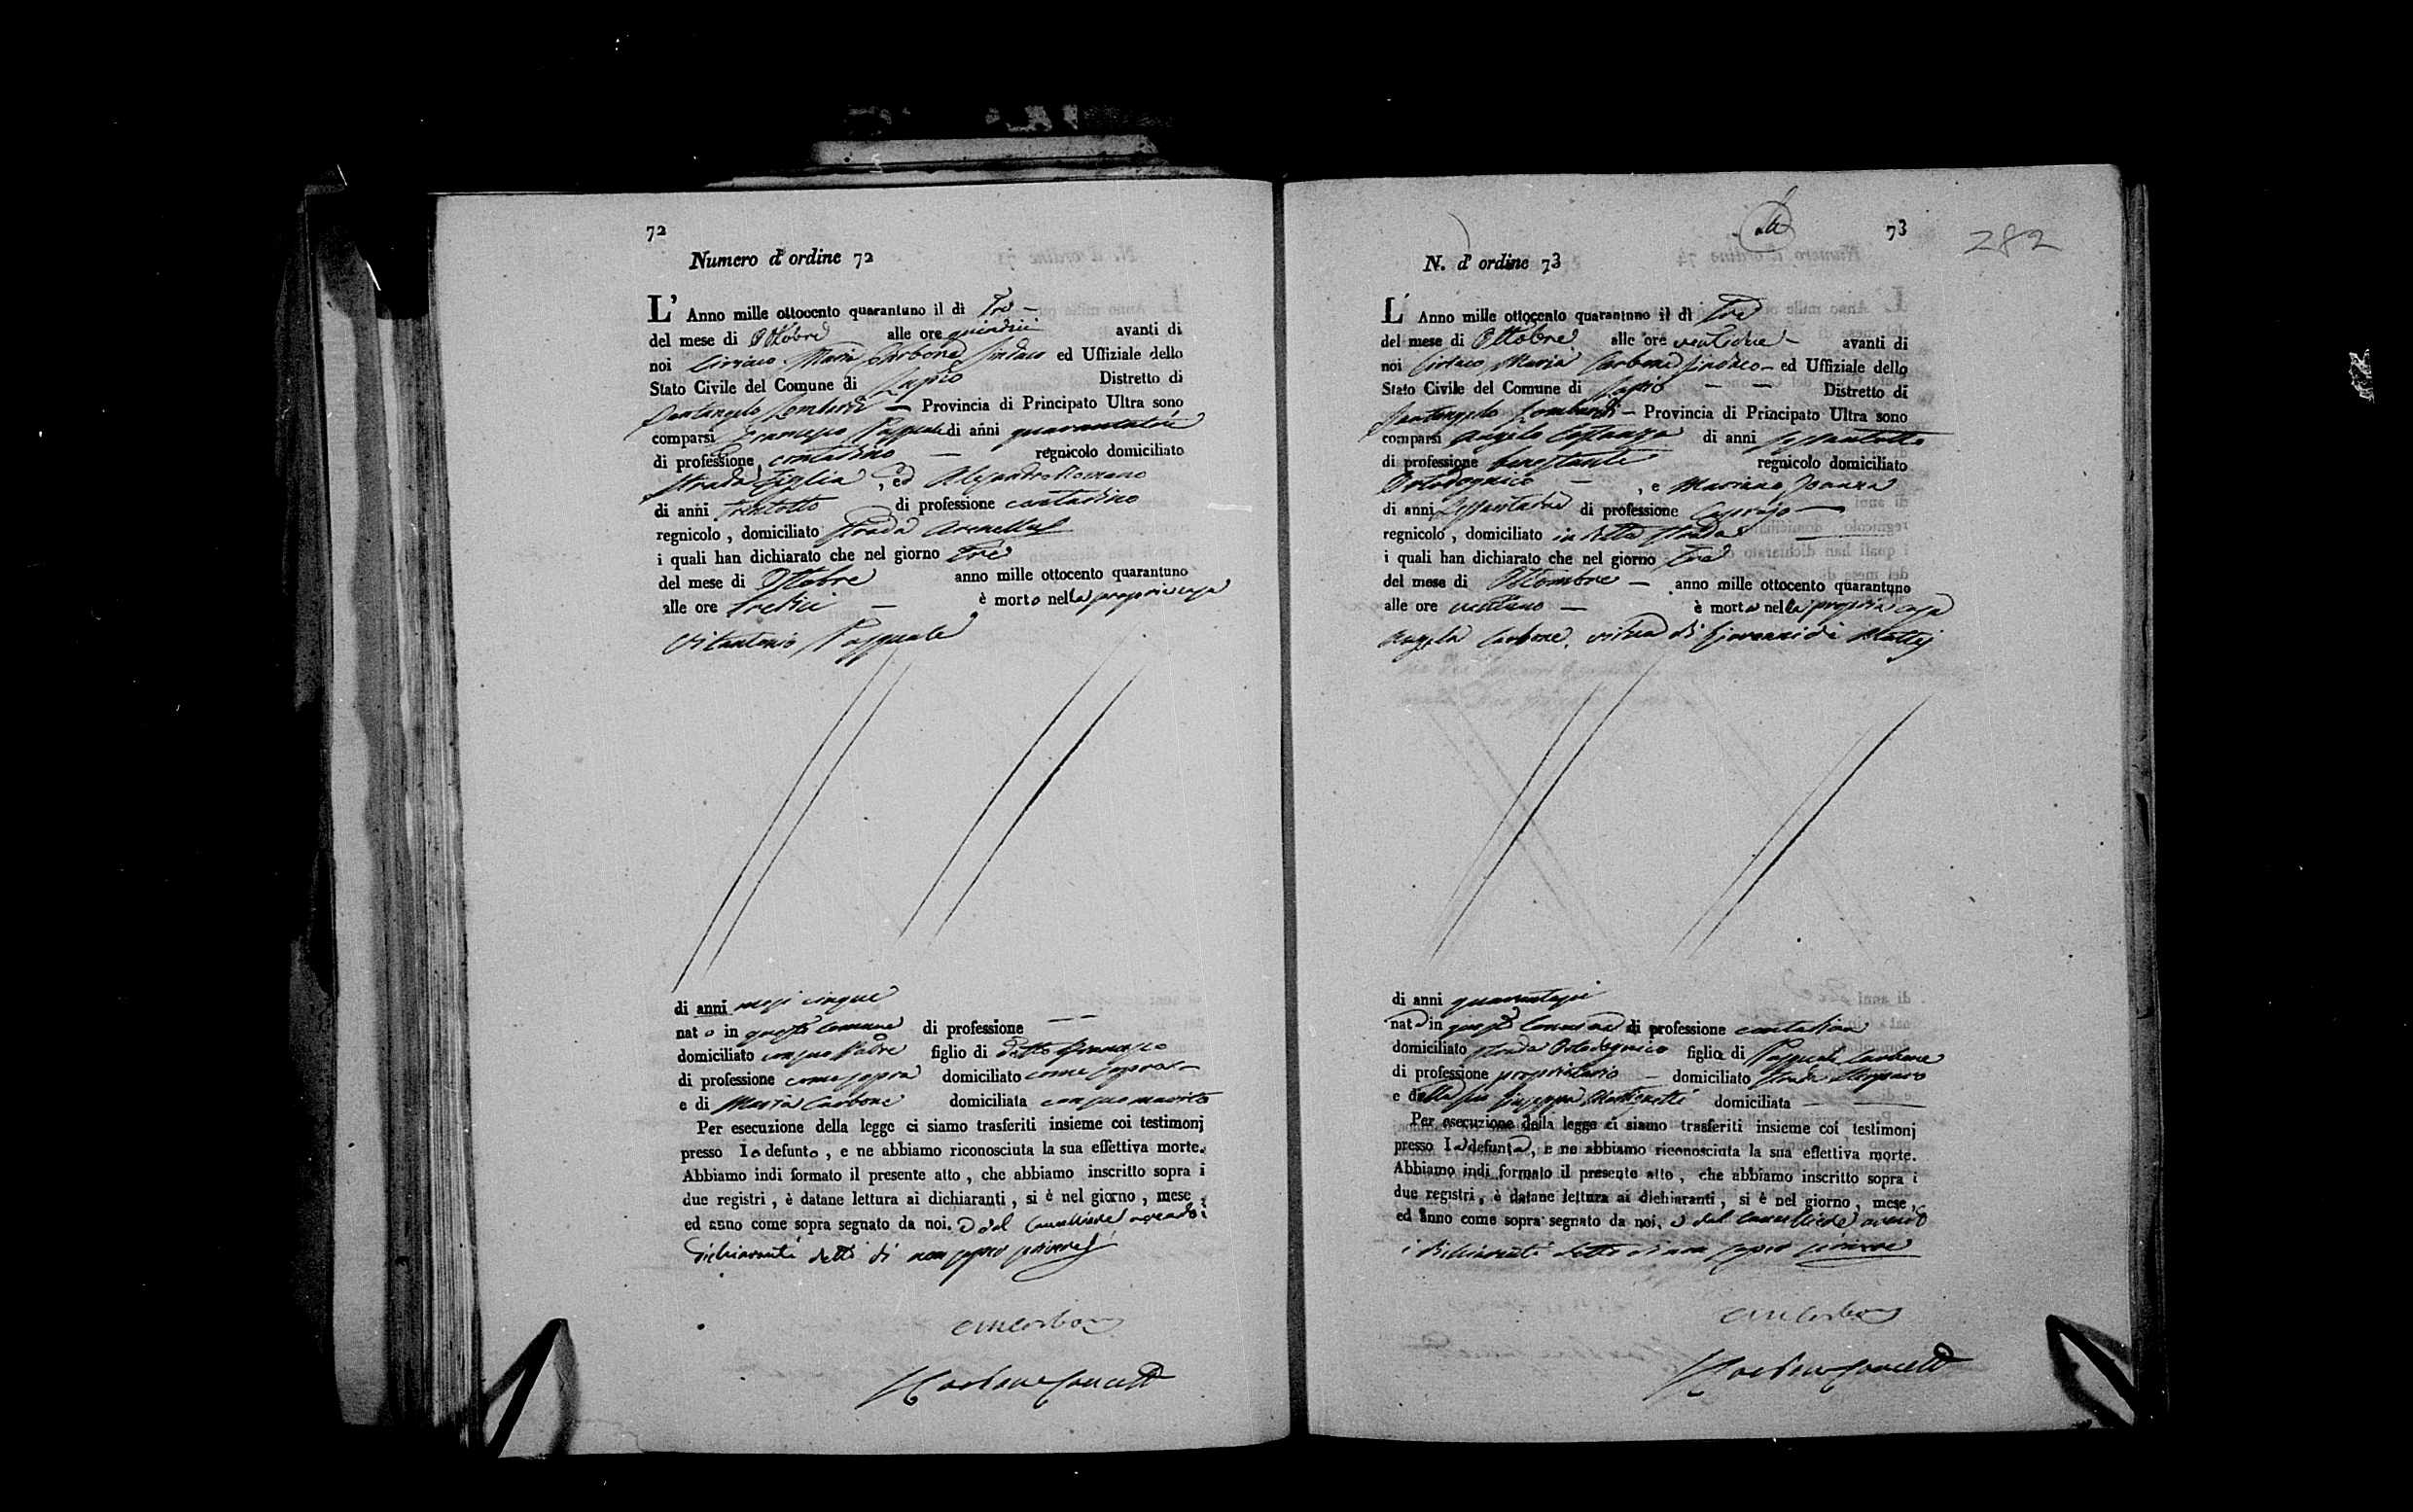 72
Numero d'ordine 72
L' Anno mille ottocento quarantuno il dì Tre
del mese di Ottobre alle ore quindici avanti di
noi Ciriaco Maria Carbone Sindaco ed Uffiziale dello
Stato Civile del Comune di Lapio Distretto di
Santangelo Lombardi — Provincia di Principato Ultra sono
comparsi Francesco Pasquale di anni
di professione contadino — regnicolo domiciliato
Strada , ed Alesandro
di anni trentotto di professione contadino
regnicolo , domiciliato Strada
i quali han dichiarato che nel giorno Tre
del mese di Ottobre anno mille ottocento quarantuno
alle ore tredici — è morto nella propria casa
Vitantonio Pasquale
di anni mesi cinque
nato in questo Comune di professione — —
domiciliato con suo Padre figlio di detto Francesco
di professione come sopra domiciliato come sopra —
e di Maria Carbone domiciliata con suo marito
Per esecuzione della legge ci siamo trasferiti insieme coi testimonj
presso lo defunto , e ne abbiamo riconosciuta la sua effettiva morte.
Abbiamo indi formato il presente atto , che abbiamo inscritto sopra i
due registri , è datane lettura ai dichiaranti , si è nel giorno , mese ,
ed anno come sopra segnato da noi. e dal Cancelliere avendo i
dichiaranti detto di non sapere scrivere
CM Carbone
Carbone Cancell
73
282
N. d' ordine 73
L' Anno mille ottocento quarantuno il dì Tre
del mese di Ottobre alle ore ventidue — avanti di
noi Ciriaco Maria Carbone Sindaco — ed Uffiziale dello
Stato Civile del Comune di Lapio — — Distretto di
Santangelo Lombardi — Provincia di Principato Ultra sono
comparsi Angelo Costanza di anni sessantotto
di professione benestante regnicolo domiciliato
— , e Mariano
di anni di professione —
regnicolo , domiciliato in detta strada
i quali han dichiarato che nel giorno tre
del mese di Ottombre — anno mille ottocento quarantuno
alle ore ventuno — è morta nella propria casa
Angela Carbone, vedova di Giovanni di Mattej
di anni quarantasei
nata in questo Comune di professione contadina
domiciliato strada figlia di Pasquale Carbone
di professione proprietario — domiciliato strada
e della fu Giuseppa domiciliata — —
Per esecuzione della legge ci siamo trasferiti insieme coi testimonj
presso la defunta, e ne abbiamo riconosciuta la sua effettiva morte.
Abbiamo indi formato il presente atto , che abbiamo inscritto sopra i
due registri , è datane lettura ai dichiaranti , si è nel giorno , mese ,
ed anno come sopra segnato da noi. e dal Cancelliere avendo
i dichiaranti detto di non sapere scrivere
CM Carbone
Carbone Cancell